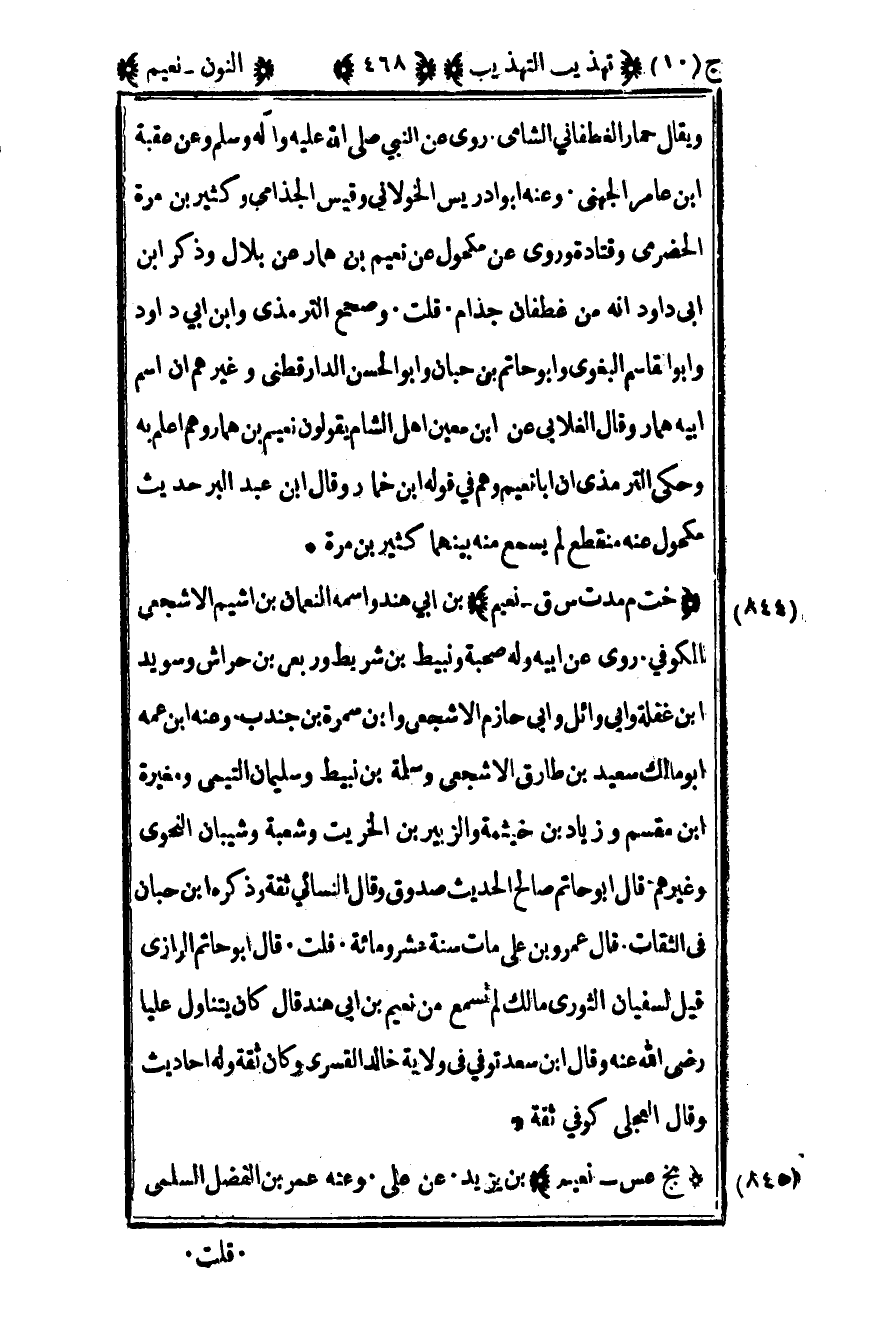 ج (١٠) ﴿ تهذيب التهذيب ﴾ ﴿ ٤٦٨ ﴾ ﴿ النون - نعيم ﴾
ويقال حمار الغطفاني الشامى. روى عن النبي صلى الله عليه وآله وسلم وعن عقبة
ابن عامر الجهنى. وعنه ابو ادريس الخولاني وقيس الجذامي وكثير بن مرة
الحضرمى وقتادة وروى عن مكحول عن نعيم بن همار عن بلال وذكر ابن
ابى داود انه من غطفان جذام. قلت. وصحح الترمذى وابن ابي داود
وابو القاسم البغوى وابو حاتم بن حبان وابو الحسن الدارقطنى وغيرهم ان اسم
ابيه همار وقال الغلابى عن ابن معين اهل الشام يقولون نعيم بن همار وهم اعلم به
وحكى الترمذى ان ابا نعيم وهم في قوله ابن خمار وقال ابن عبد البر حديث
مكحول عنه منقطع لم يسمع منه بينهما كثير بن مرة *
(٨٤٤) ﴿ خت م مدت س ق - نعيم ﴾ بن ابي هند واسمه النعمان بن اشيم الاشجعى
الكوفي. روى عن ابيه وله صحبة ونبيط بن شريط وربعى بن حراش وسويد
ابن غفلة وابى وائل وابى حازم الاشجعى وابن سمرة بن جندب. وعنه ابن عمه
ابو مالك سعيد بن طارق الاشجعى وسلمة بن نبيط وسليمان التيمى ومغيرة
ابن مقسم وزياد بن خيثمة والزبير بن الخريت وشعبة وشيبان النحوى
وغيرهم. قال ابو حاتم صالح الحديث صدوق وقال النسائي ثقة وذكره ابن حبان
فى الثقات. قال عمرو بن على مات سنة عشر ومائة. قلت. قال ابو حاتم الرازى
قيل لسفيان الثورى مالك لم تسمع من نعيم بن ابى هند قال كان يتناول عليا
رضى الله عنه وقال ابن سعد توفي فى ولاية خالد القسرى وكان ثقة وله احاديث
وقال العجلى كوفي ثقة *
(٨٤٥) ﴿ بخ عس - نعيم ﴾ بن يزيد. عن على. وعنه عمر بن الفضل السلمى
. قلت .